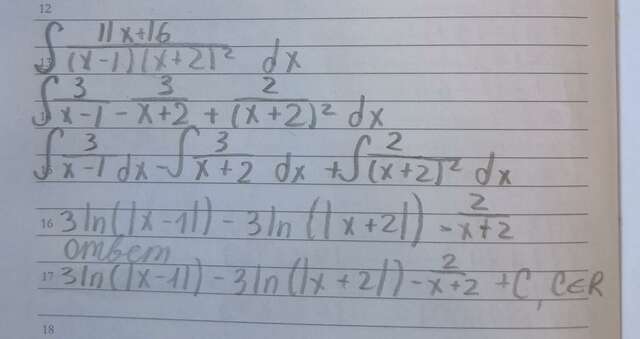 12
∫ (11x+16)/((x-1)(x+2)²) dx
13
∫ 3/(x-1) - 3/(x+2) + 2/(x+2)² dx
∫ 3/(x-1) dx - ∫ 3/(x+2) dx + ∫ 2/(x+2)² dx
16 3ln(|x-1|) - 3ln(|x+2|) - 2/(x+2)
ответ
17 3ln(|x-1|) - 3ln(|x+2|) - 2/(x+2) + C, C∈R
18